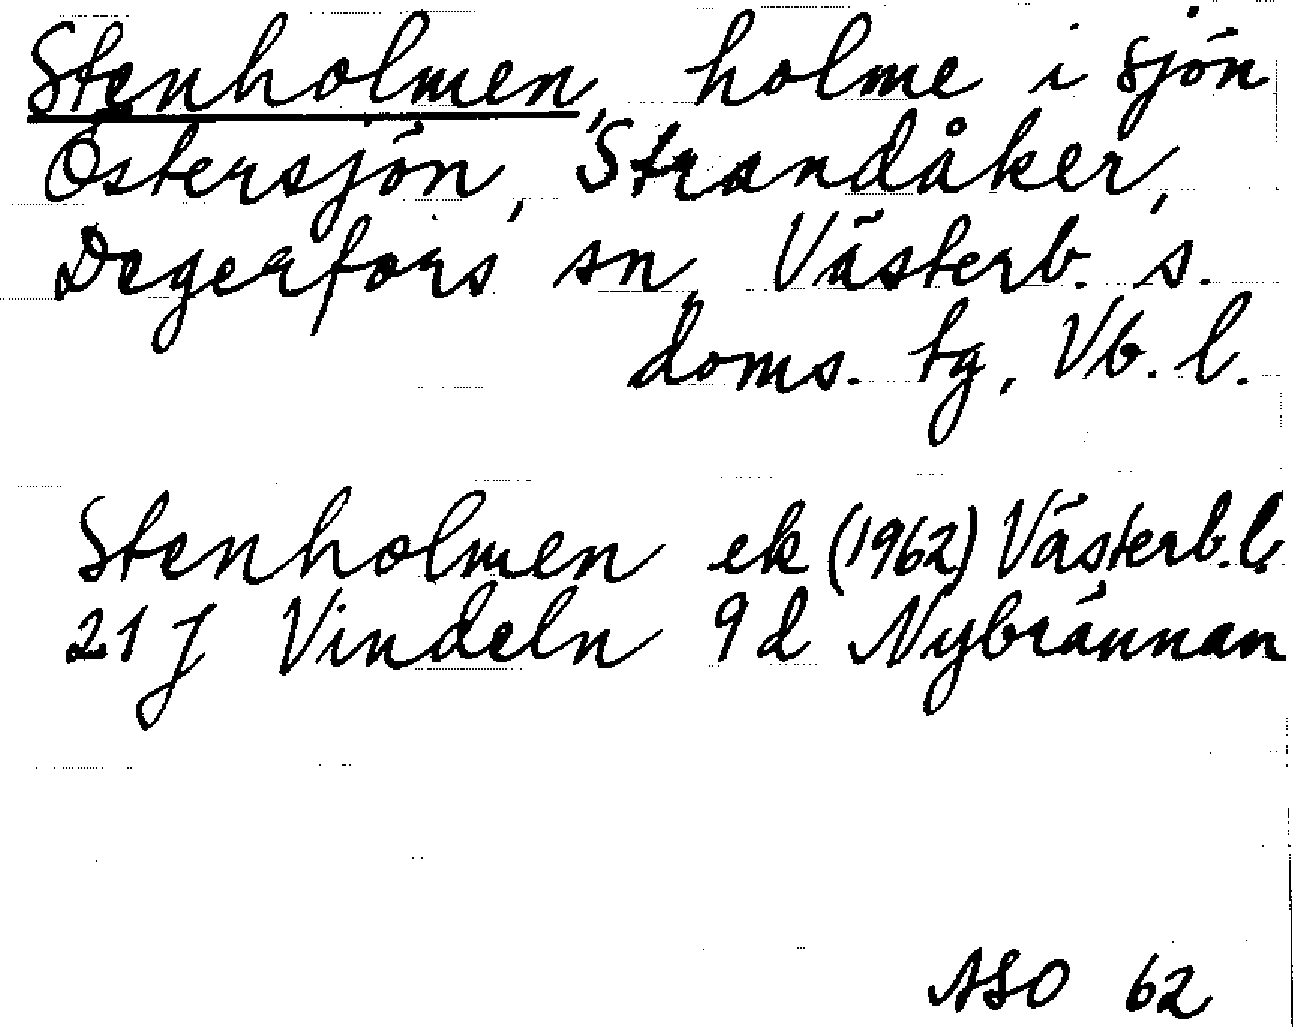 Stenholmen, holme i sjön
Östersjön, Strandåker,
Degerfors sn, Västerb. s.
doms. tg, Vb. l.
Stenholmen ek (1962) Västerb. l.
21 J Vindeln 9d Nybrännan
ASO 62